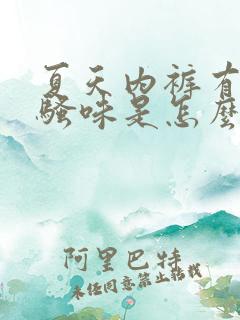 夏天内裤有
骚味是怎么
阿里巴特
未经同意禁止转载